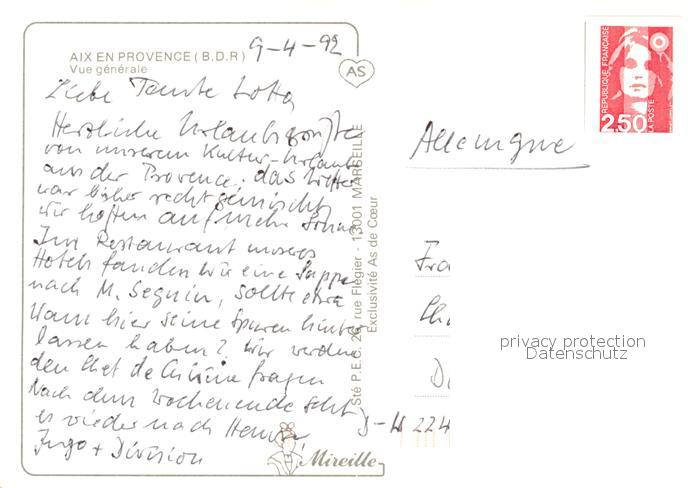 AIX EN PROVENCE (B.D.R)
Vue générale
9-4-92
AS
Liebe Tante Lotta
Herzliche Urlaubsgrüße
von unserem Kultur-Urlaub
aus der Provence. Das Wetter
war bisher recht gemischt
wir hoffen auf mehr Sonne
Im Restaurant unseres
Hotels fanden wir eine Suppe
nach M. Seguin, sollte etwa
Mann hier seine Spuren hinter
lassen haben? Wir werden
den Chef de Cuisine fragen
Nach dem Wochenende geht
es wieder nach Hause,
Ingo + Division
Mireille
Sté P.E.C. 26, rue Flégier - 13001 MARSEILLE
Exclusivité As de Cœur
REPUBLIQUE FRANÇAISE
2,50
LA POSTE
Allemagne
Fra
D-W 224
privacy protection
Datenschutz